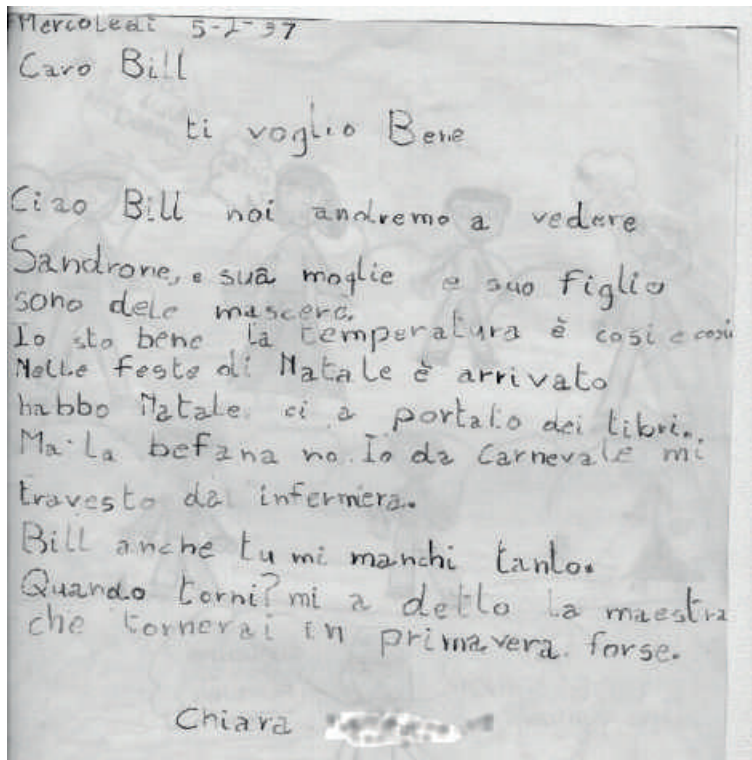 Mercoledi 5-2-97
Caro Bill
ti voglio Bene
Ciao Bill noi andremo a vedere
Sandrone, e sua moglie e suo figlio
sono dele mascere.
Io sto bene la temperatura è cosi e cosi
Nelle feste di Natale è arrivato
habbo Natale. ci a portato dei libri.
Ma La befana no. Io da Carnevale mi
travesto da infermiera.
Bill anche tu mi manchi tanto.
Quando torni? mi a detto la maestra
che tornerai in primavera. forse.
Chiara